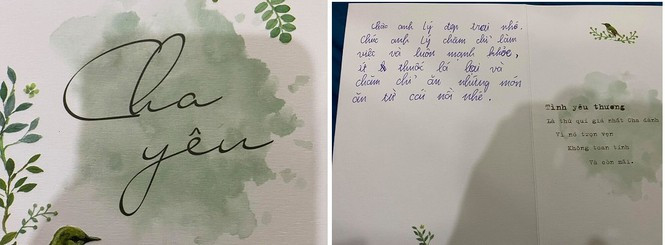 Cha
yêu
Chúc anh Lý đẹp trai nhé.
Chúc anh Lý chăm chỉ làm
việc và luôn mạnh khỏe,
ít thuốc lá lại và
chăm chỉ ăn những món
ăn từ cái nồi nhé.
Tình yêu thương
Là thứ quí giá nhất Cha dành
Vì nó trọn vẹn
Không toan tính
Và còn mãi.